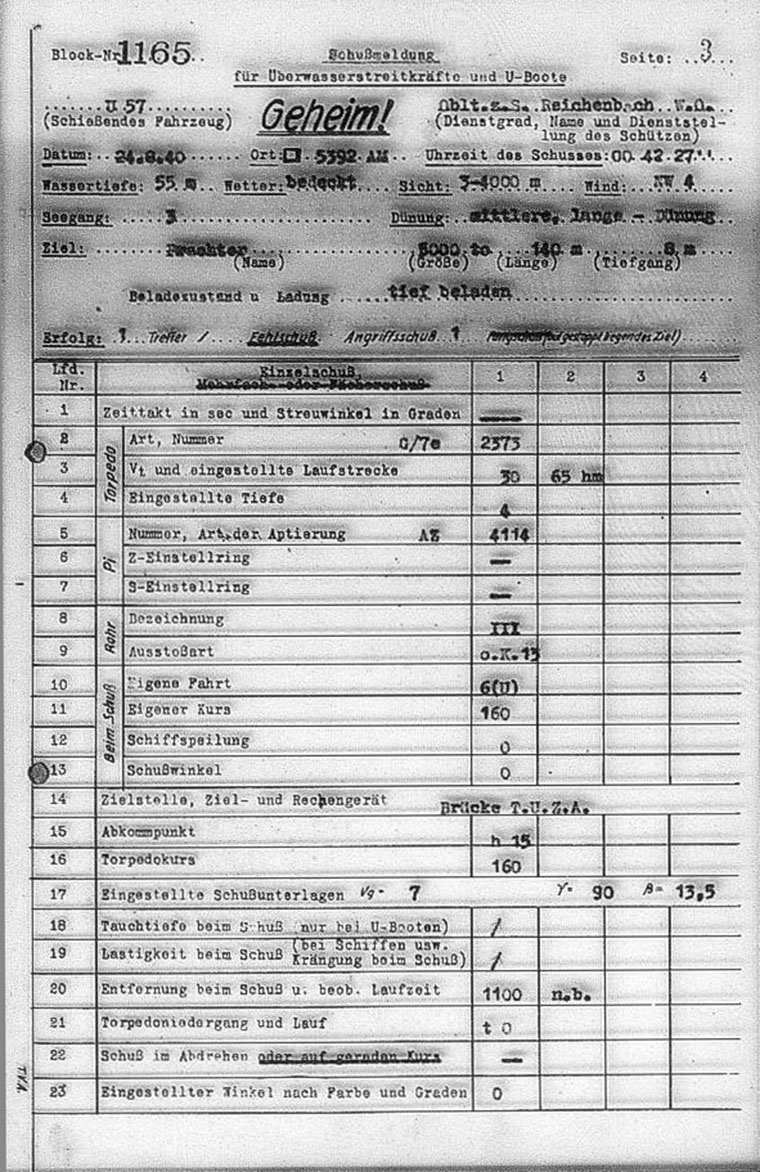 Block-Nr. 1165 Schußmeldung Seite: 3
für Überwasserstreitkräfte und U-Boote
U 57 Geheim! Oblt.z.S. Reichenbach W.O.
(Schießendes Fahrzeug) (Dienstgrad, Name und Dienststel-
lung des Schützen)
Datum: 24.8.40 Ort: 5392 AM Uhrzeit des Schusses: 00 42.27
Wassertiefe: 55 m Wetter: bedeckt Sicht: 3-4000 m Wind: NW 4
Seegang: 3 Dünung: mittlere, lange - Dünung
Ziel: Frachter 5000 to 140 m 8 m
(Name) (Größe) (Länge) (Tiefgang)
Beladezustand u Ladung tief beladen
Erfolg: 1 Treffer / Fehlschuß Angriffsschuß 1
Lfd. Nr. Einzelschuß, 1 2 3 4
Mehrfach- oder Fächerschuß
1 Zeittakt in sec und Streuwinkel in Graden —
Torpedo
2 Art, Nummer G/7e 2373
3 Vt und eingestellte Laufstrecke 30 65 hm
4 Eingestellte Tiefe 4
Pi
5 Nummer, Art der Aptierung AZ 4114
6 Z-Einstellring —
7 S-Einstellring —
Rohr
8 Bezeichnung III
9 Ausstoßart o.K.13
Beim Schuß
10 Eigene Fahrt 6(U)
11 Eigener Kurs 160
12 Schiffspeilung 0
13 Schußwinkel 0
14 Zielstelle, Ziel- und Rechengerät Brücke T.U.Z.A.
15 Abkommpunkt h 15
16 Torpedokurs 160
17 Eingestellte Schußunterlagen Vg= 7 γ= 90 β= 13,5
18 Tauchtiefe beim Schuß (nur bei U-Booten) /
19 Lastigkeit beim Schuß (bei Schiffen usw. Krängung beim Schuß) /
20 Entfernung beim Schuß u. beob. Laufzeit 1100 n.b.
21 Torpedoniedergang und Lauf t 0
22 Schuß im Abdrehen oder auf geraden Kurs —
23 Eingestellter Winkel nach Farbe und Graden 0